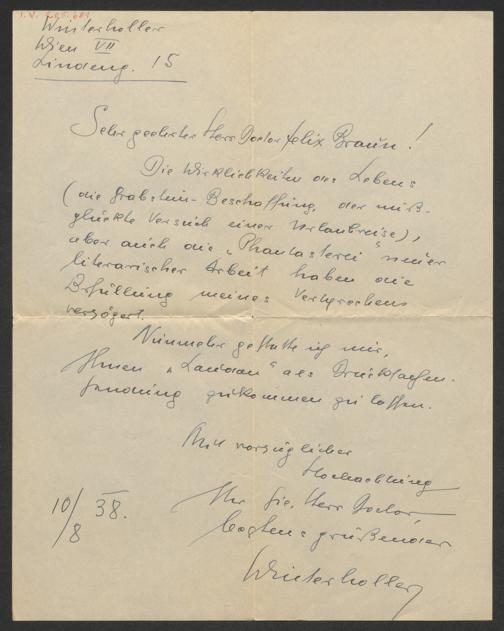 I.N. 205.681
Winterholler
Wien VII
Lindeng. 15
Sehr geehrter Herr Doctor Felix Braun!
Die Wirklichkeiten des Lebens
(die Grabstein-Beschaffung, der miß-
glückte Versuch einer Urlaubreise),
aber auch die „Phantasterei" 
literarischer Arbeit haben die
Erfüllung meines Versprechens
verzögert.
Nunmehr gestatte ich mir,
Ihnen „Landau" als Drucksachen-
sendung zukommen zu lassen.
Mit vorzüglicher
Hochachtung
Ihr Sie, Herr Doctor,
bestens grüßender
Winterholler
10/8 38.